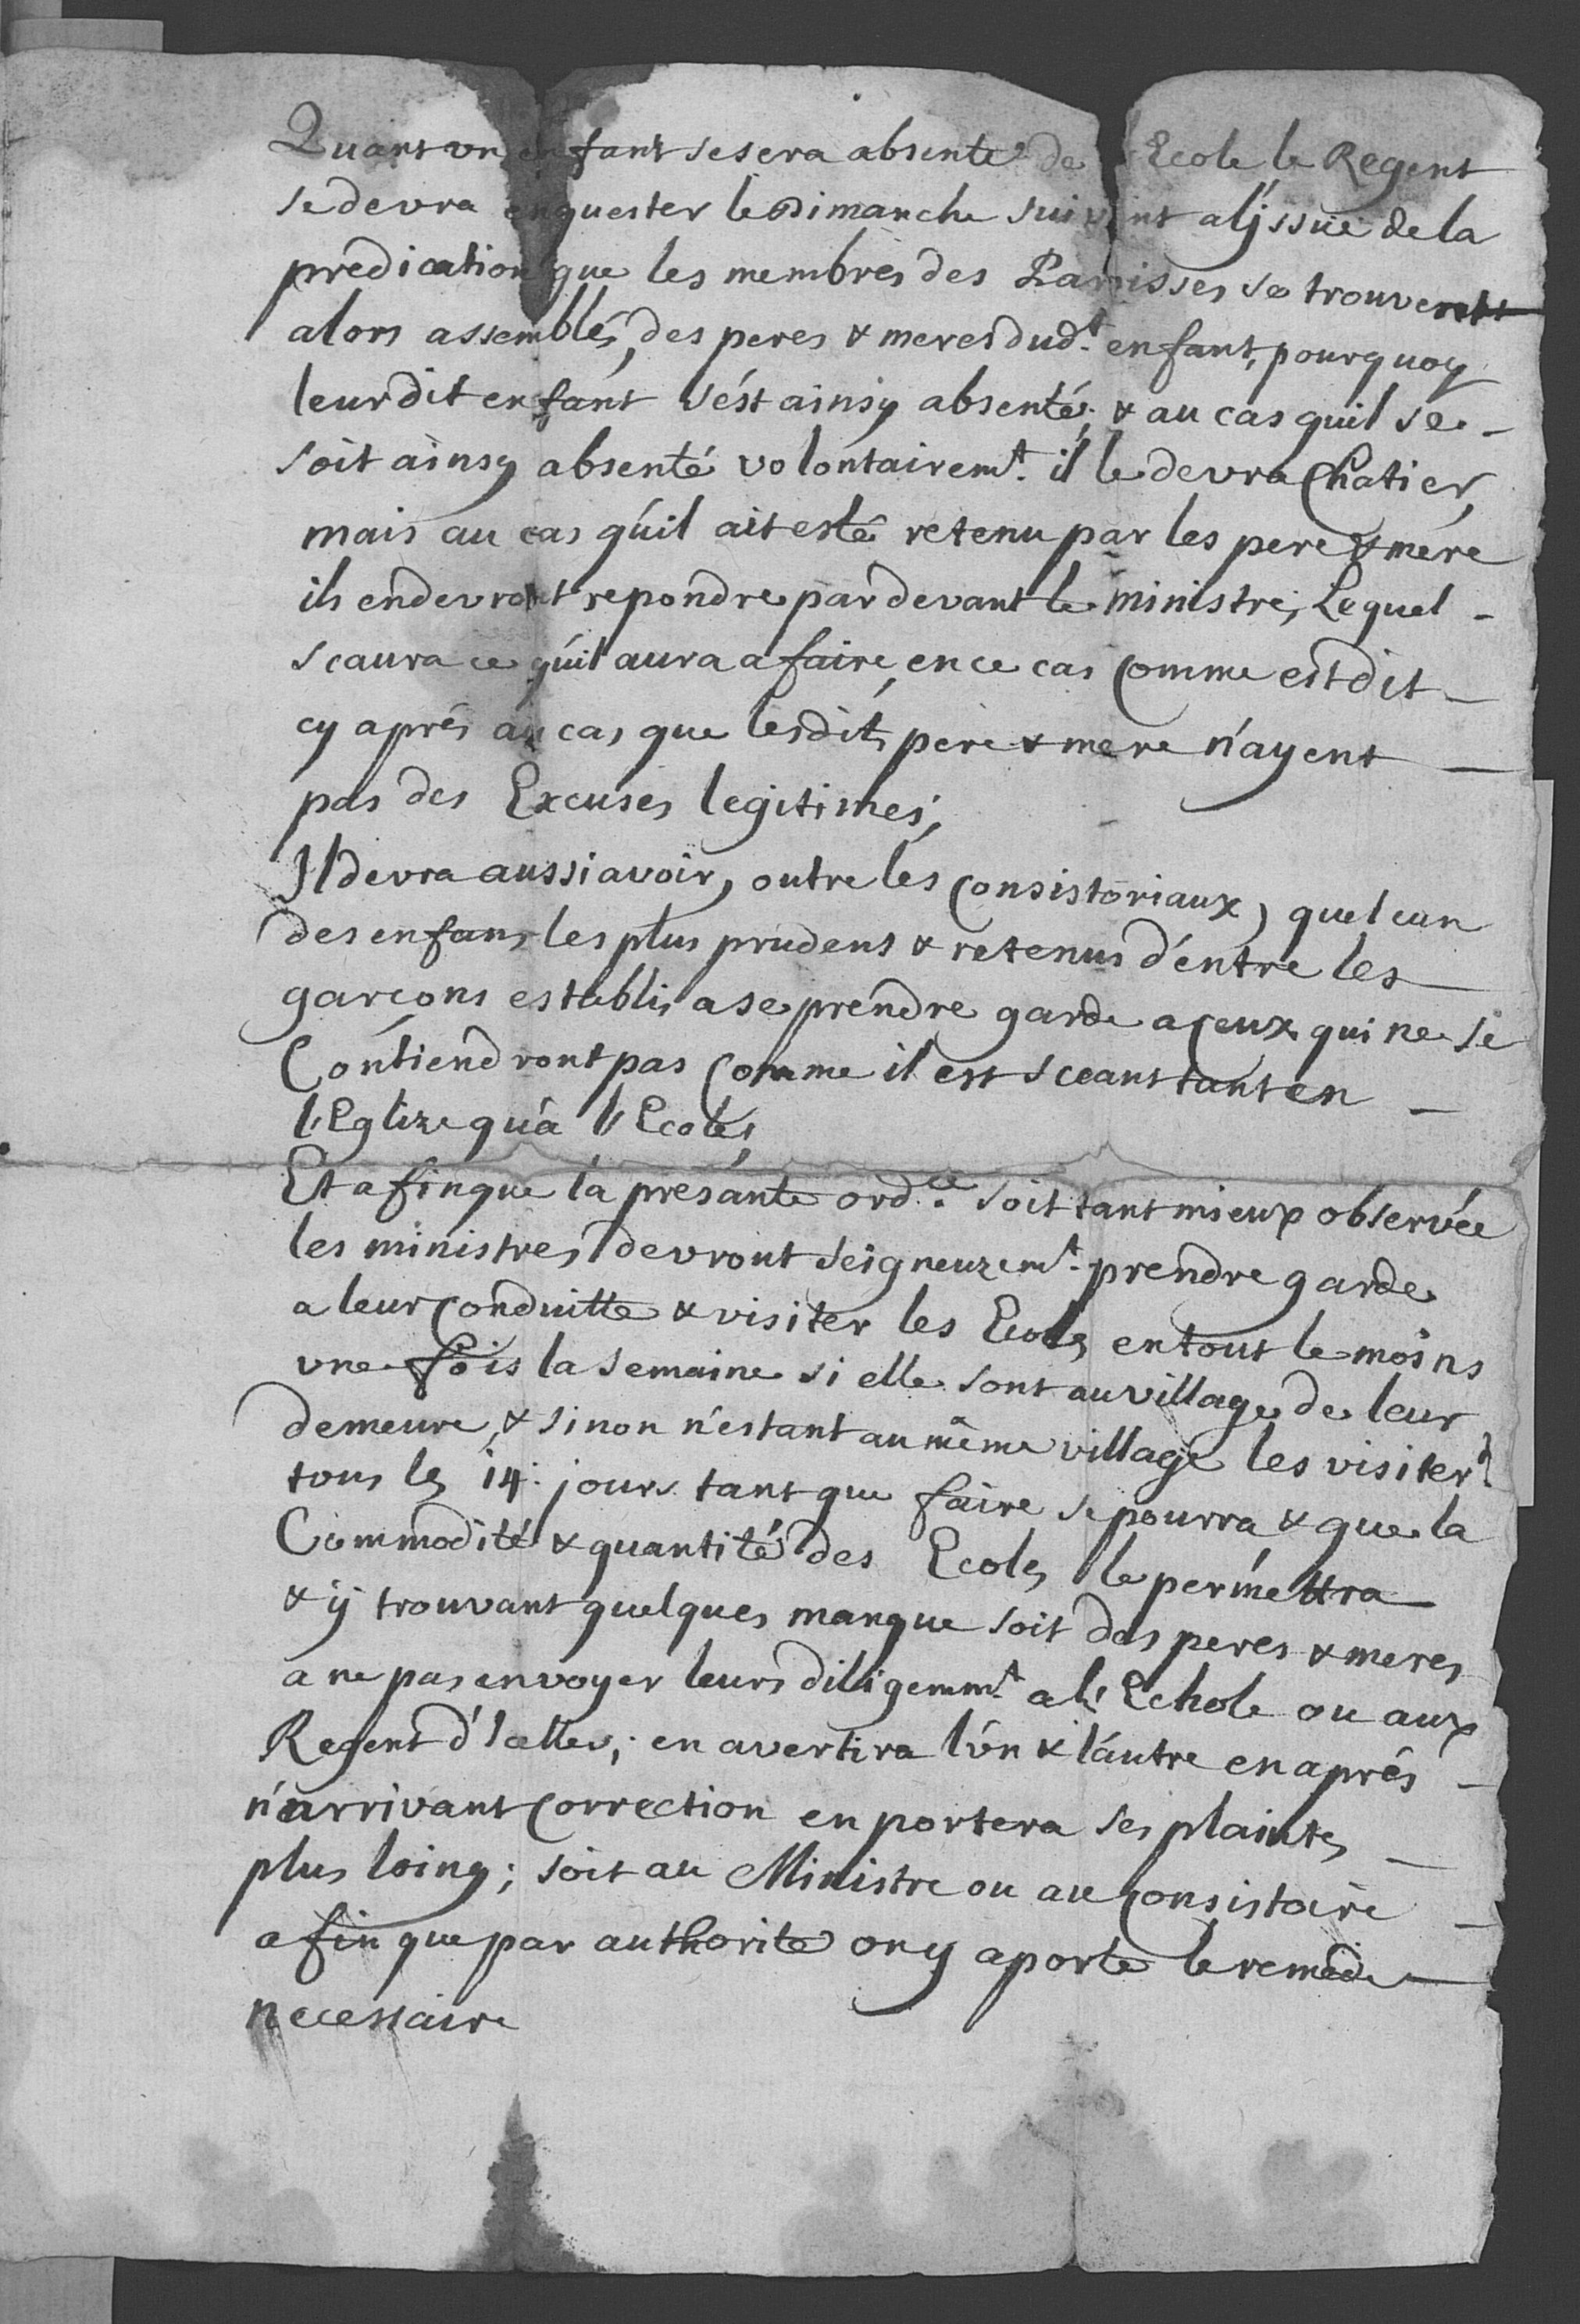 Quant un enfant se sera absenté de Ecole le Regent
se devra enquester le Dimanche suivant a lÿssuë de la
predication que les membres des Parrisses se trouvent
alors assemblés, des peres & meres dud.t enfant, pourquoy
leurdit enfant s'ést ainsy absenté; & au cas quil se -
soit ainsy absenté volontairem.t il le devra Chatier,
mais au cas qu'il ait esté retenu par les pere & mere
ils en devront repondre par devant le ministre, Lequel -
scaura ce qu'il aura a faire, en ce cas Comme est dit -
cy aprés au cas que lesdits pere & mere n'ayent -
pas des Excuses legitimes;
Il devra aussi avoir, outre les Consistoriaux, quelcun
des enfans les plus prudens & retenus d'entre les
garçons establis a se prendre garde a Ceux qui ne se
Contiendront pas Comme il est sceant tant en -
l'Eglize qu'a l'Ecole,
Et afin que la presante ord.ce soit tant mieux observée
les ministres devront seigneuzem.t prendre garde
a leur Conduitte & visiter les Ecoles en tout le moins
une fois la semaine si elle sont au village de leur
demeure, & sinon n'estant au même village les visiter
tous les 14. jours tant que faire se pourra & que la
Commodité & quantité des Ecoles le permettra
& ÿ trouvant quelques manque soit des peres & meres
a ne pas envoyer leurs diligemm.t a l'Echole ou aux
Regent d'Icelles; en avertira l'ún & l'áutre en aprés -
n'arrivant Correction en portera ses plaintes -
plus loing; soit au Ministre ou au Consistoire -
afin que par authorite on y aporte le remede
necessaire